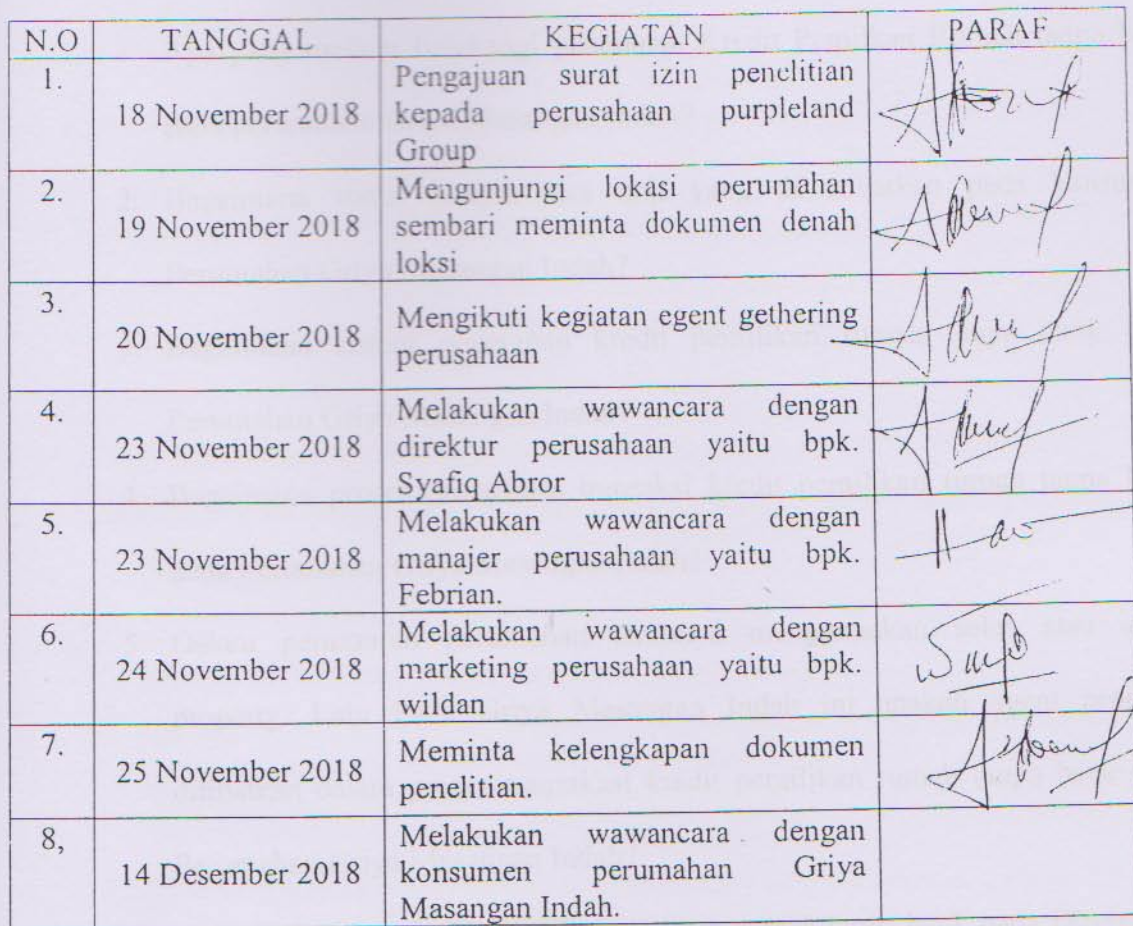 N.O TANGGAL KEGIATAN PARAF
1.
18 November 2018
Pengajuan surat izin penelitian
kepada perusahaan purpleland
Group
2.
19 November 2018
Mengunjungi lokasi perumahan
sembari meminta dokumen denah
loksi
3.
20 November 2018
Mengikuti kegiatan egent gethering
perusahaan
4.
23 November 2018
Melakukan wawancara dengan
direktur perusahaan yaitu bpk.
Syafiq Abror
5.
23 November 2018
Melakukan wawancara dengan
manajer perusahaan yaitu bpk.
Febrian.
6.
24 November 2018
Melakukan wawancara dengan
marketing perusahaan yaitu bpk.
wildan
7.
25 November 2018
Meminta kelengkapan dokumen
penelitian.
8,
14 Desember 2018
Melakukan wawancara dengan
konsumen perumahan Griya
Masangan Indah.